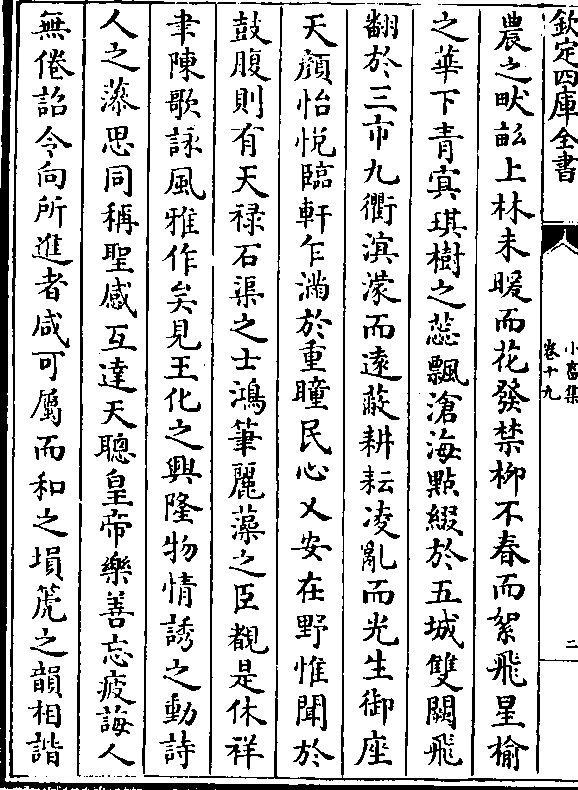 欽定四庫全書
小畜集
卷十九
二
農之畎畝上林未暖而花發禁栁不春而絮飛星榆
之華下青㝠琪樹之蕊飄滄海點綴於五城雙闕飛
翻於三市九衢溟濛而逺蔽耕耘凌亂而光生御座
天顔怡悅臨軒乍滿於重瞳民心乂安在野惟聞於
鼓腹則有天禄石渠之士鴻筆麗藻之臣覩是休祥
聿陳歌詠風雅作矣見王化之興隆物情誘之動詩
人之藻思同稱聖感互達天聰皇帝樂善忘疲誨人
無倦詔令向所進者咸可屬而和之塤箎之韻相諧